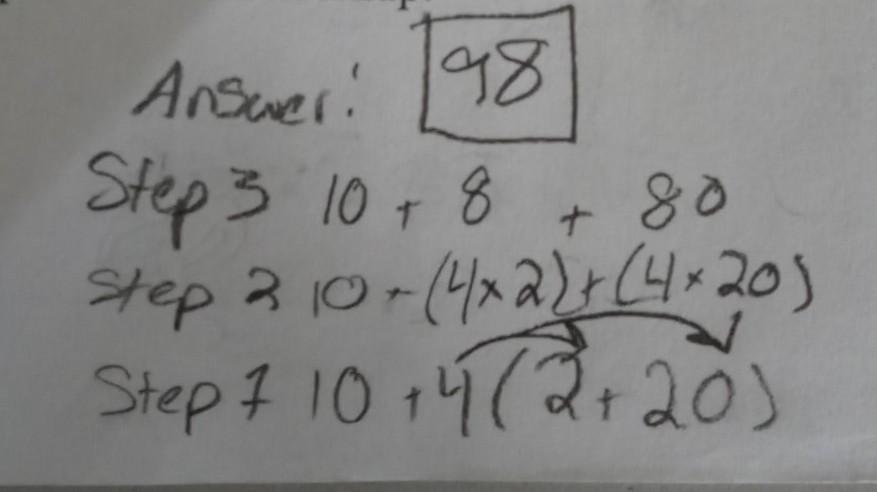 Answer: 98
Step 3 10 + 8 + 80
Step 2 10 - (4×2) + (4×20)
Step 1 10 + 4(2 + 20)